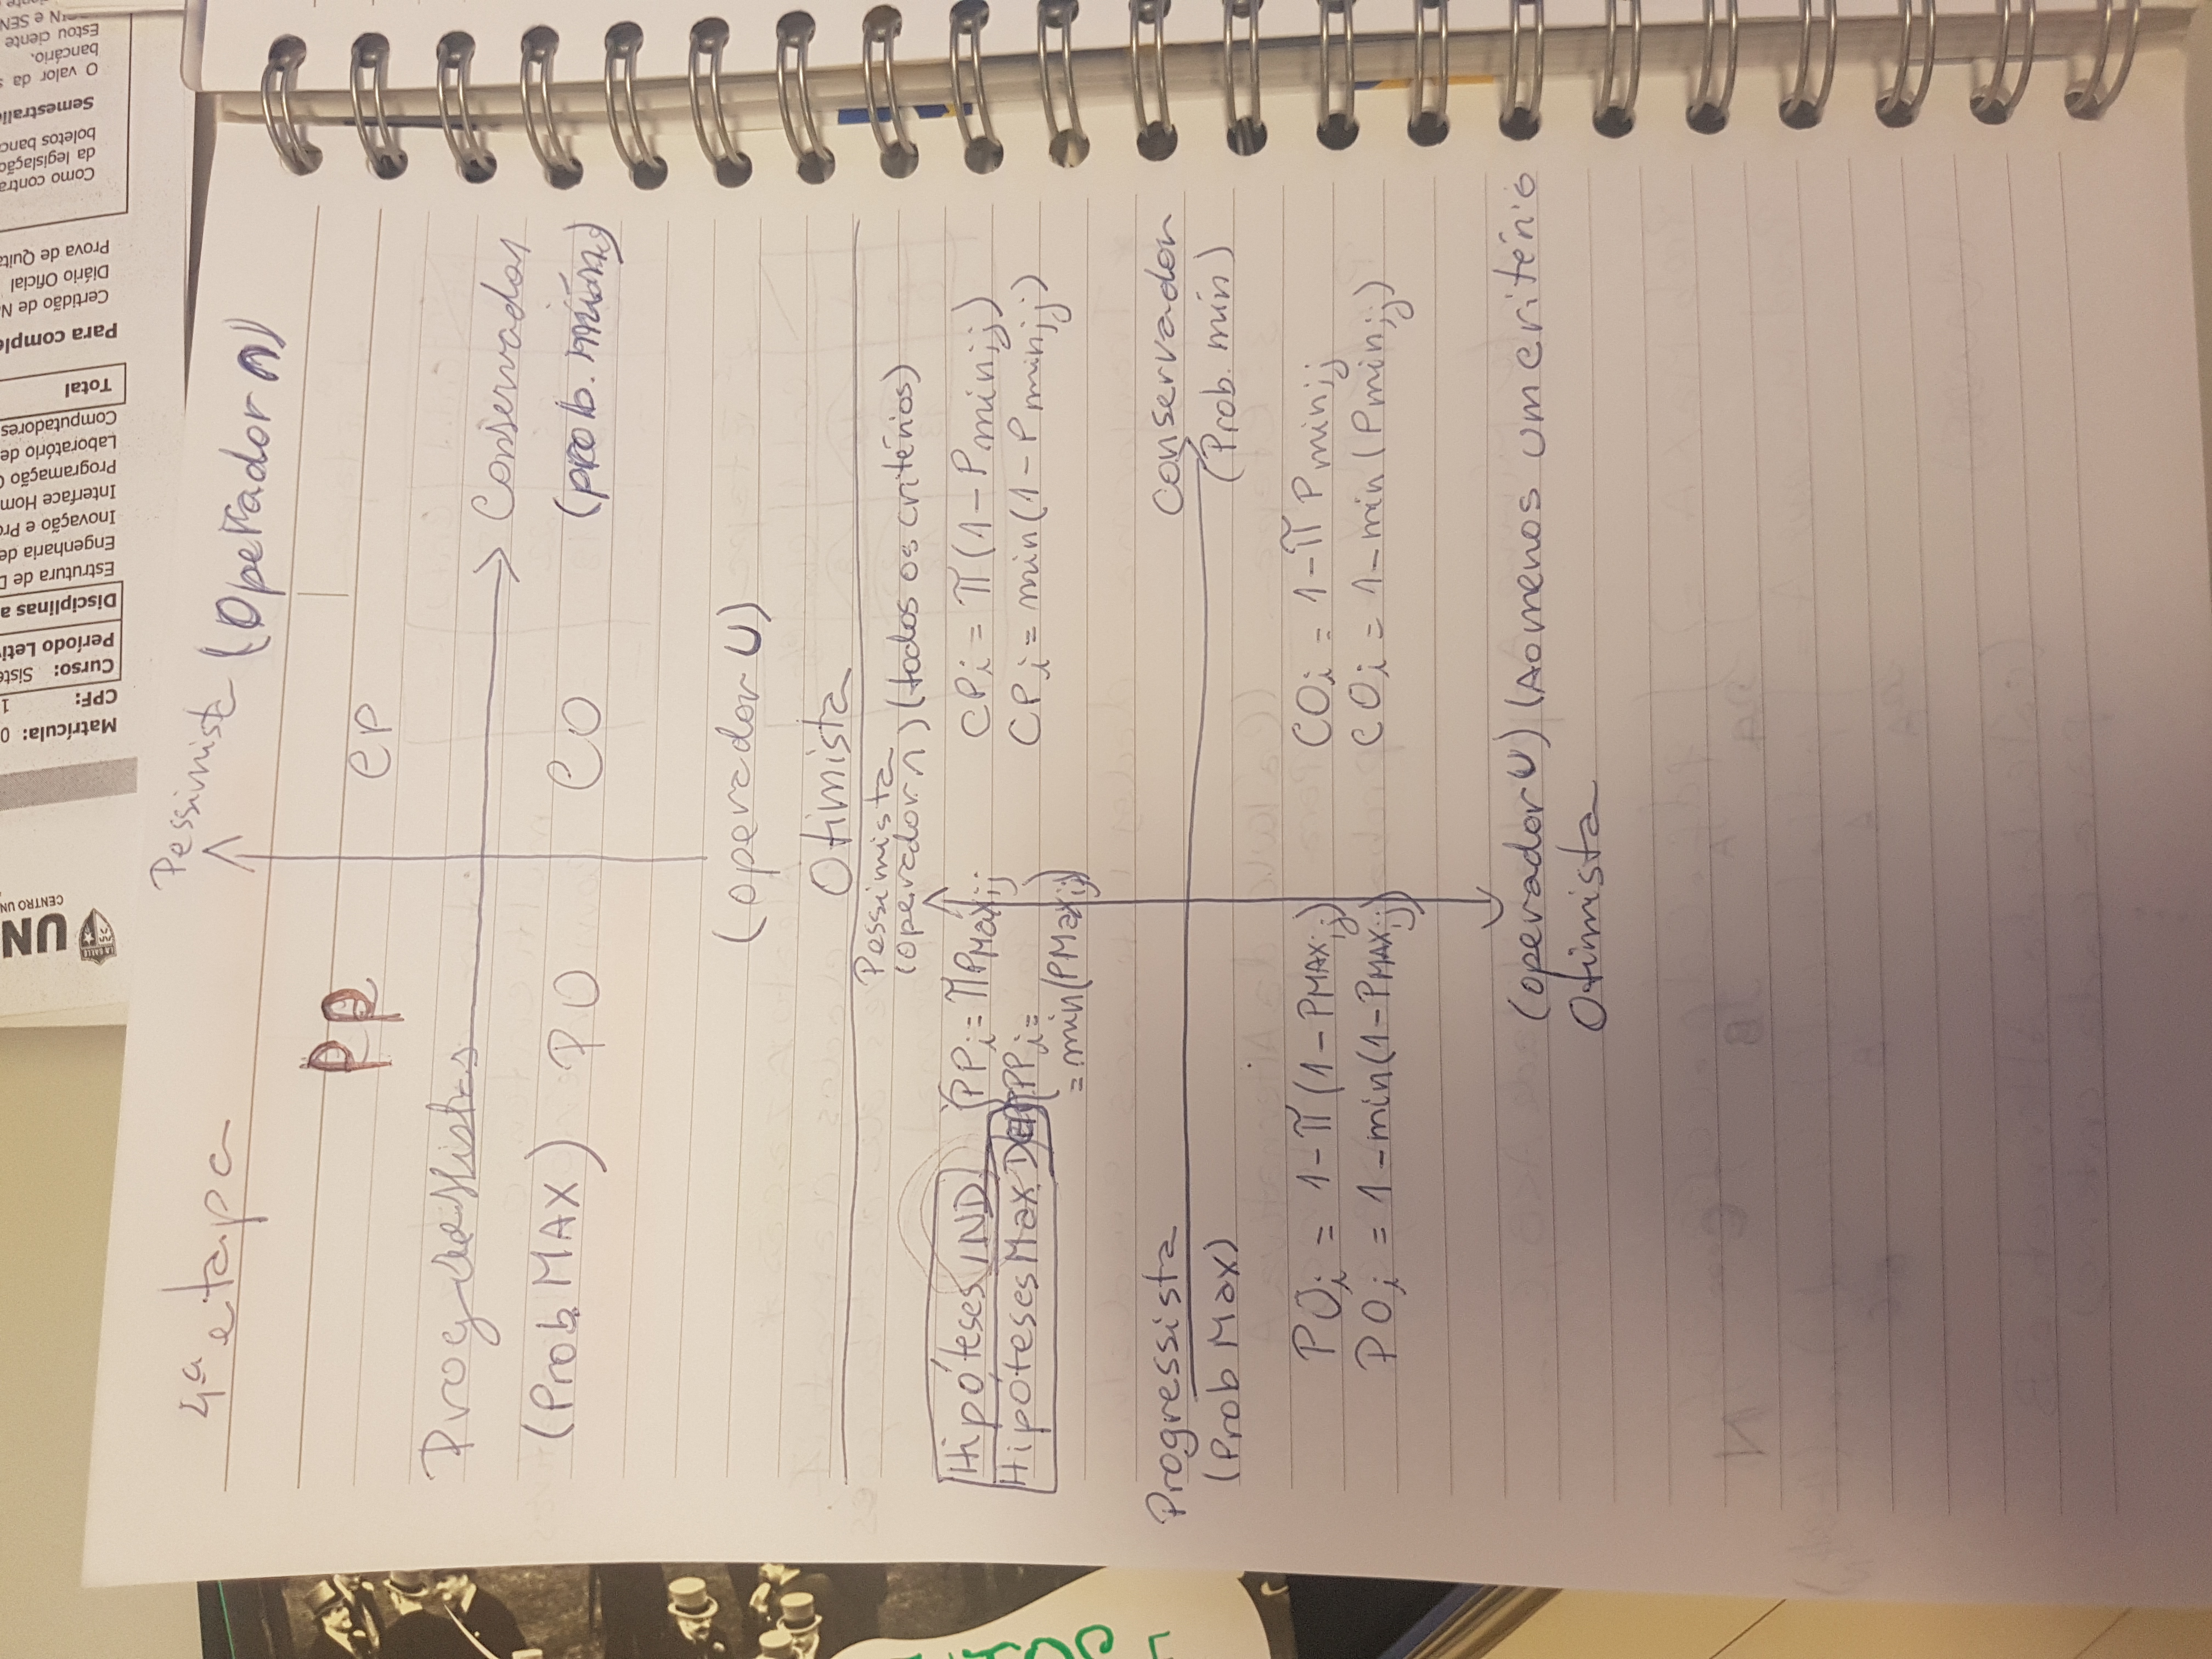 UN
CENTRO UN
Matrícula: 0
CPF: 1
Curso: Siste
Período Leti
Disciplinas a
Estrutura de D
Engenharia de
Inovação e Pro
Interface Hom
Programação O
Laboratório de
Computadores
Total
Para comple
Certidão de N
Diário Oficial
Prova de Quita
Como contra
da legislação
boletos banc
Semestrali
O valor da s
bancário.
Estou ciente
N e SEN
4ª etapa
Pessimista (Operador ∩)
PP CP
Progressistas Conservador
(Prob. MAX) PO CO (prob. mín)
(operador U)
Otimista
Pessimista
(operador ∩) (todos os critérios)
Hipóteses IND. PPi = πPMaxij CPi = π(1-Pminij)
Hipóteses Max DEP PPi = CPi = min(1-Pminij)
= min(PMaxij)
Progressista Conservador
(Prob Max) (Prob. mín)
POi = 1-π(1-PMAXij) COi = 1-πPminij
POi = 1-min(1-PMAXij) COi = 1-min(Pminij)
(operador U) (Ao menos um critério
Otimista